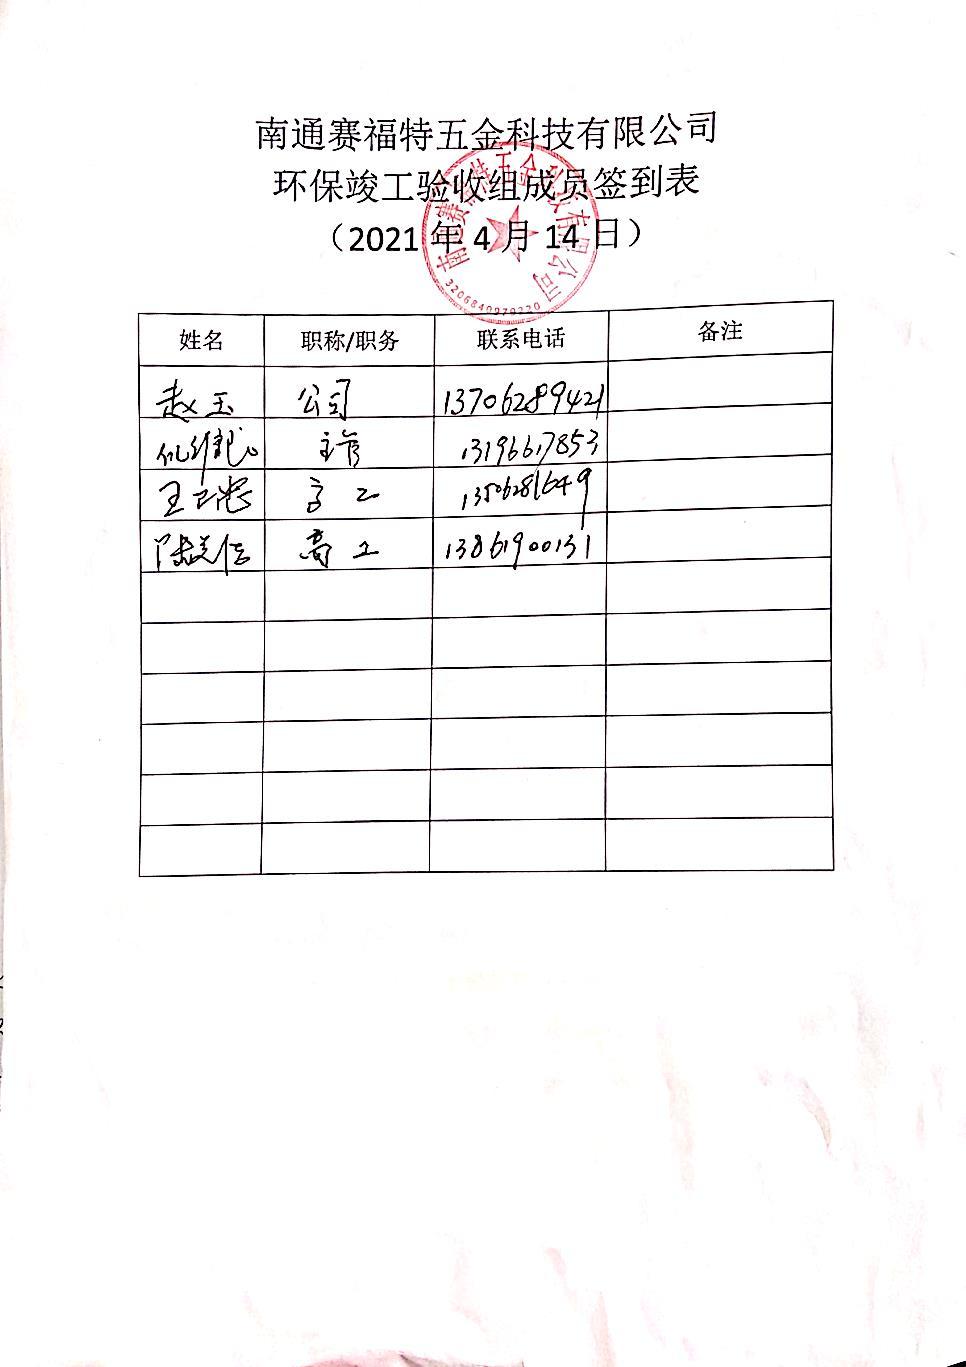 南通赛福特五金科技有限公司
环保竣工验收组成员签到表
（2021年4月14日）
南通赛福特五金科技有限公司
3206840970220
姓名 职称/职务 联系电话 备注
赵玉 公司 13706289421
主管 13196617853
王 高工 13506281649
陈 高工 13861900131